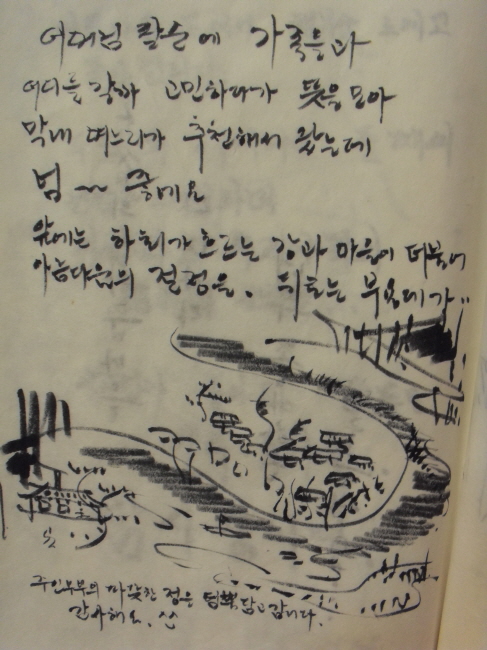 어머님 팔순에 가족들과
어디를 갈까 고민하다가 뜻을 모아
막내 며느리가 추천해서 왔는데
넘~~ 좋네요
앞에는 하회가 흐르는 강과 마을이 더불어
아름다움의 절정을. 뒤로는 부용대가"
주인부부의 따뜻한 정은 담고갑니다.
감사해요.